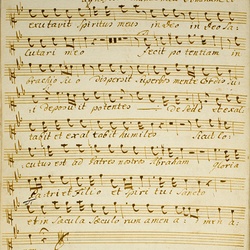 exultavit Spiritus meus in Deo in Deo Sa:
lutari meo Fecit potentiam in
brachio Suo dispersit superbos mente Cordis Su:
i deposuit potentes de sede et exal:
tabit et exaltabit humiles Sicut lo:
cutus est ad Patres nostros Abraham Gloria
Patri et Filio et Spiritui Sancto
et in Saecula Saeculorum amen a: men a: